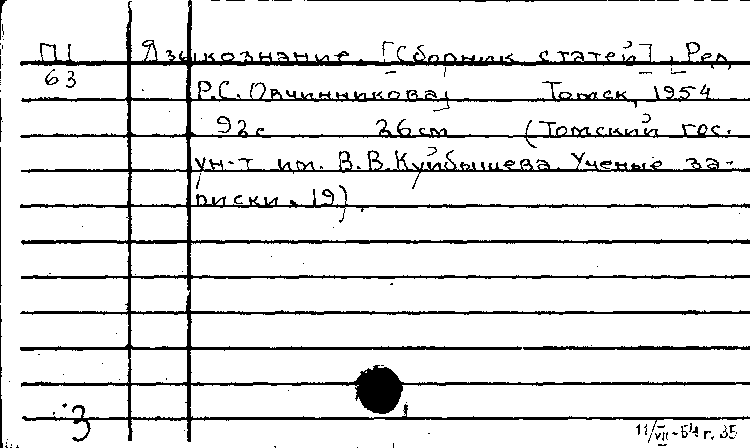 П1 Языкознание. [Сборник статей]. [Ред.
63 Р.С. Овчинникова] Томск, 1954
92с 26см (Томский гос.
ун-т им. В.В. Куйбышева. Ученые за-
писки. 19).
3
11/VII-54 г. 35